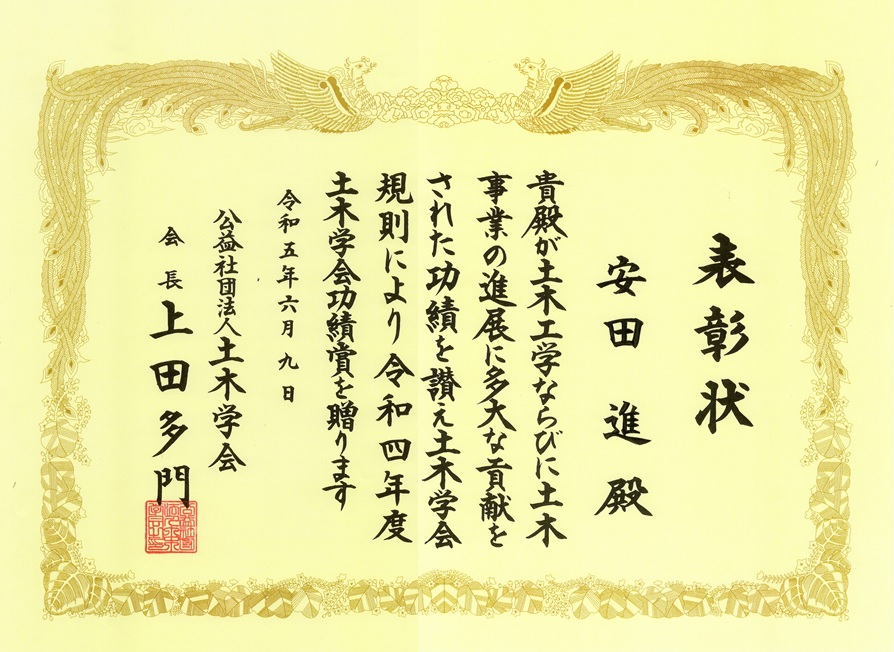 表彰状
安田 進 殿
貴殿が土木工学ならびに土木
事業の進展に多大な貢献を
された功績を讃え土木学会
規則により令和四年度
土木学会功績賞を贈ります
令和五年六月九日
公益社団法人土木学会
会長 上田多門